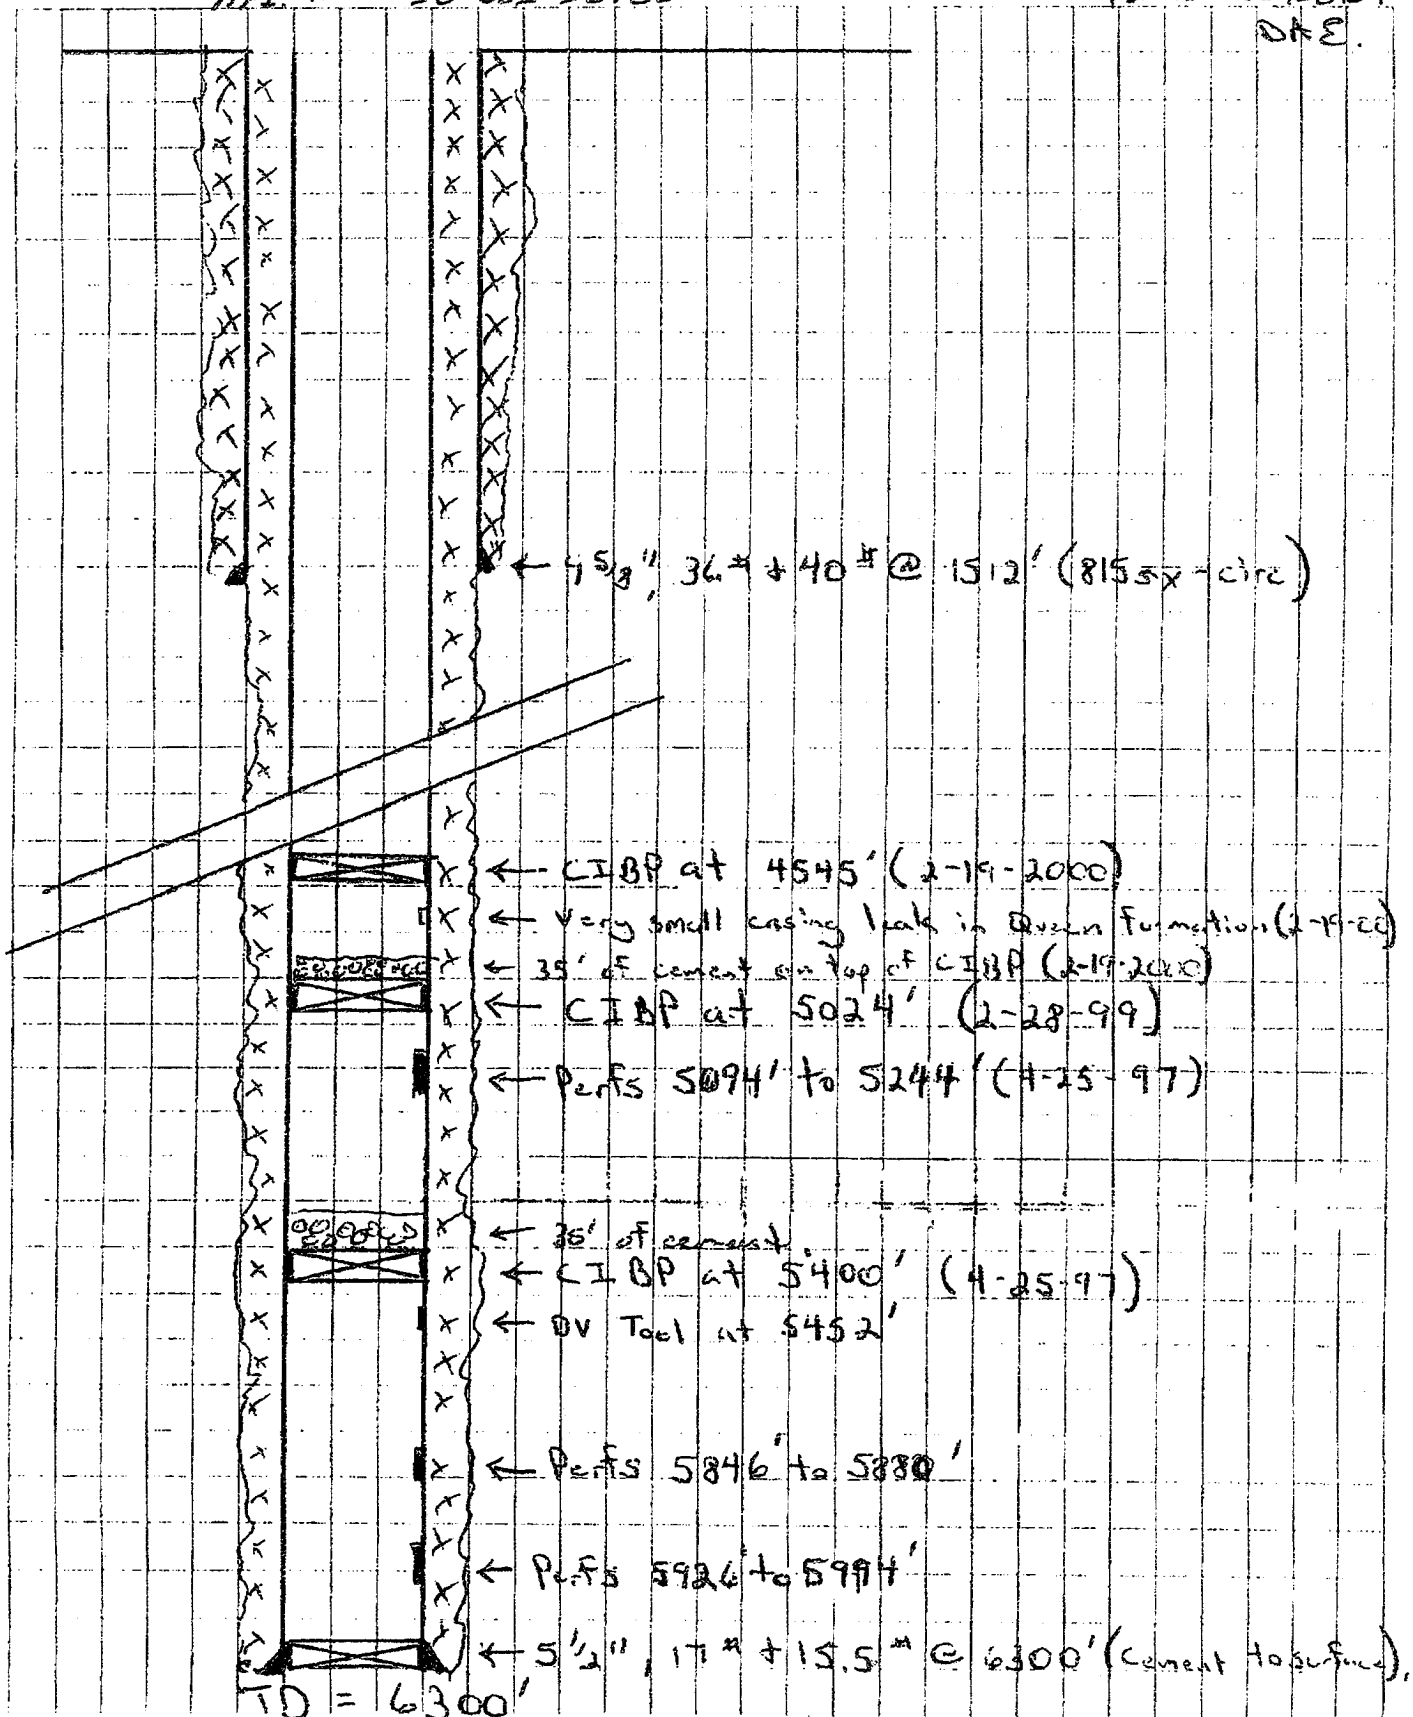 DAE.
← 9 5/8", 36# + 40# @ 1512' (815 sx - circ)
← CIBP at 4545' (2-19-2000)
← Very small casing leak in Queen Formation (2-19-00)
← 35' of cement on top of CIBP (2-19-2000)
← CIBP at 5024' (2-28-99)
← Perfs 5094' to 5244' (4-25-97)
← 35' of cement
← CIBP at 5400' (4-25-97)
← DV Tool at 5452'
← Perfs 5846' to 5880'
← Perfs 5926' to 5994'
← 5 1/2", 17# + 15.5# @ 6300' (Cement to surface).
TD = 6300'